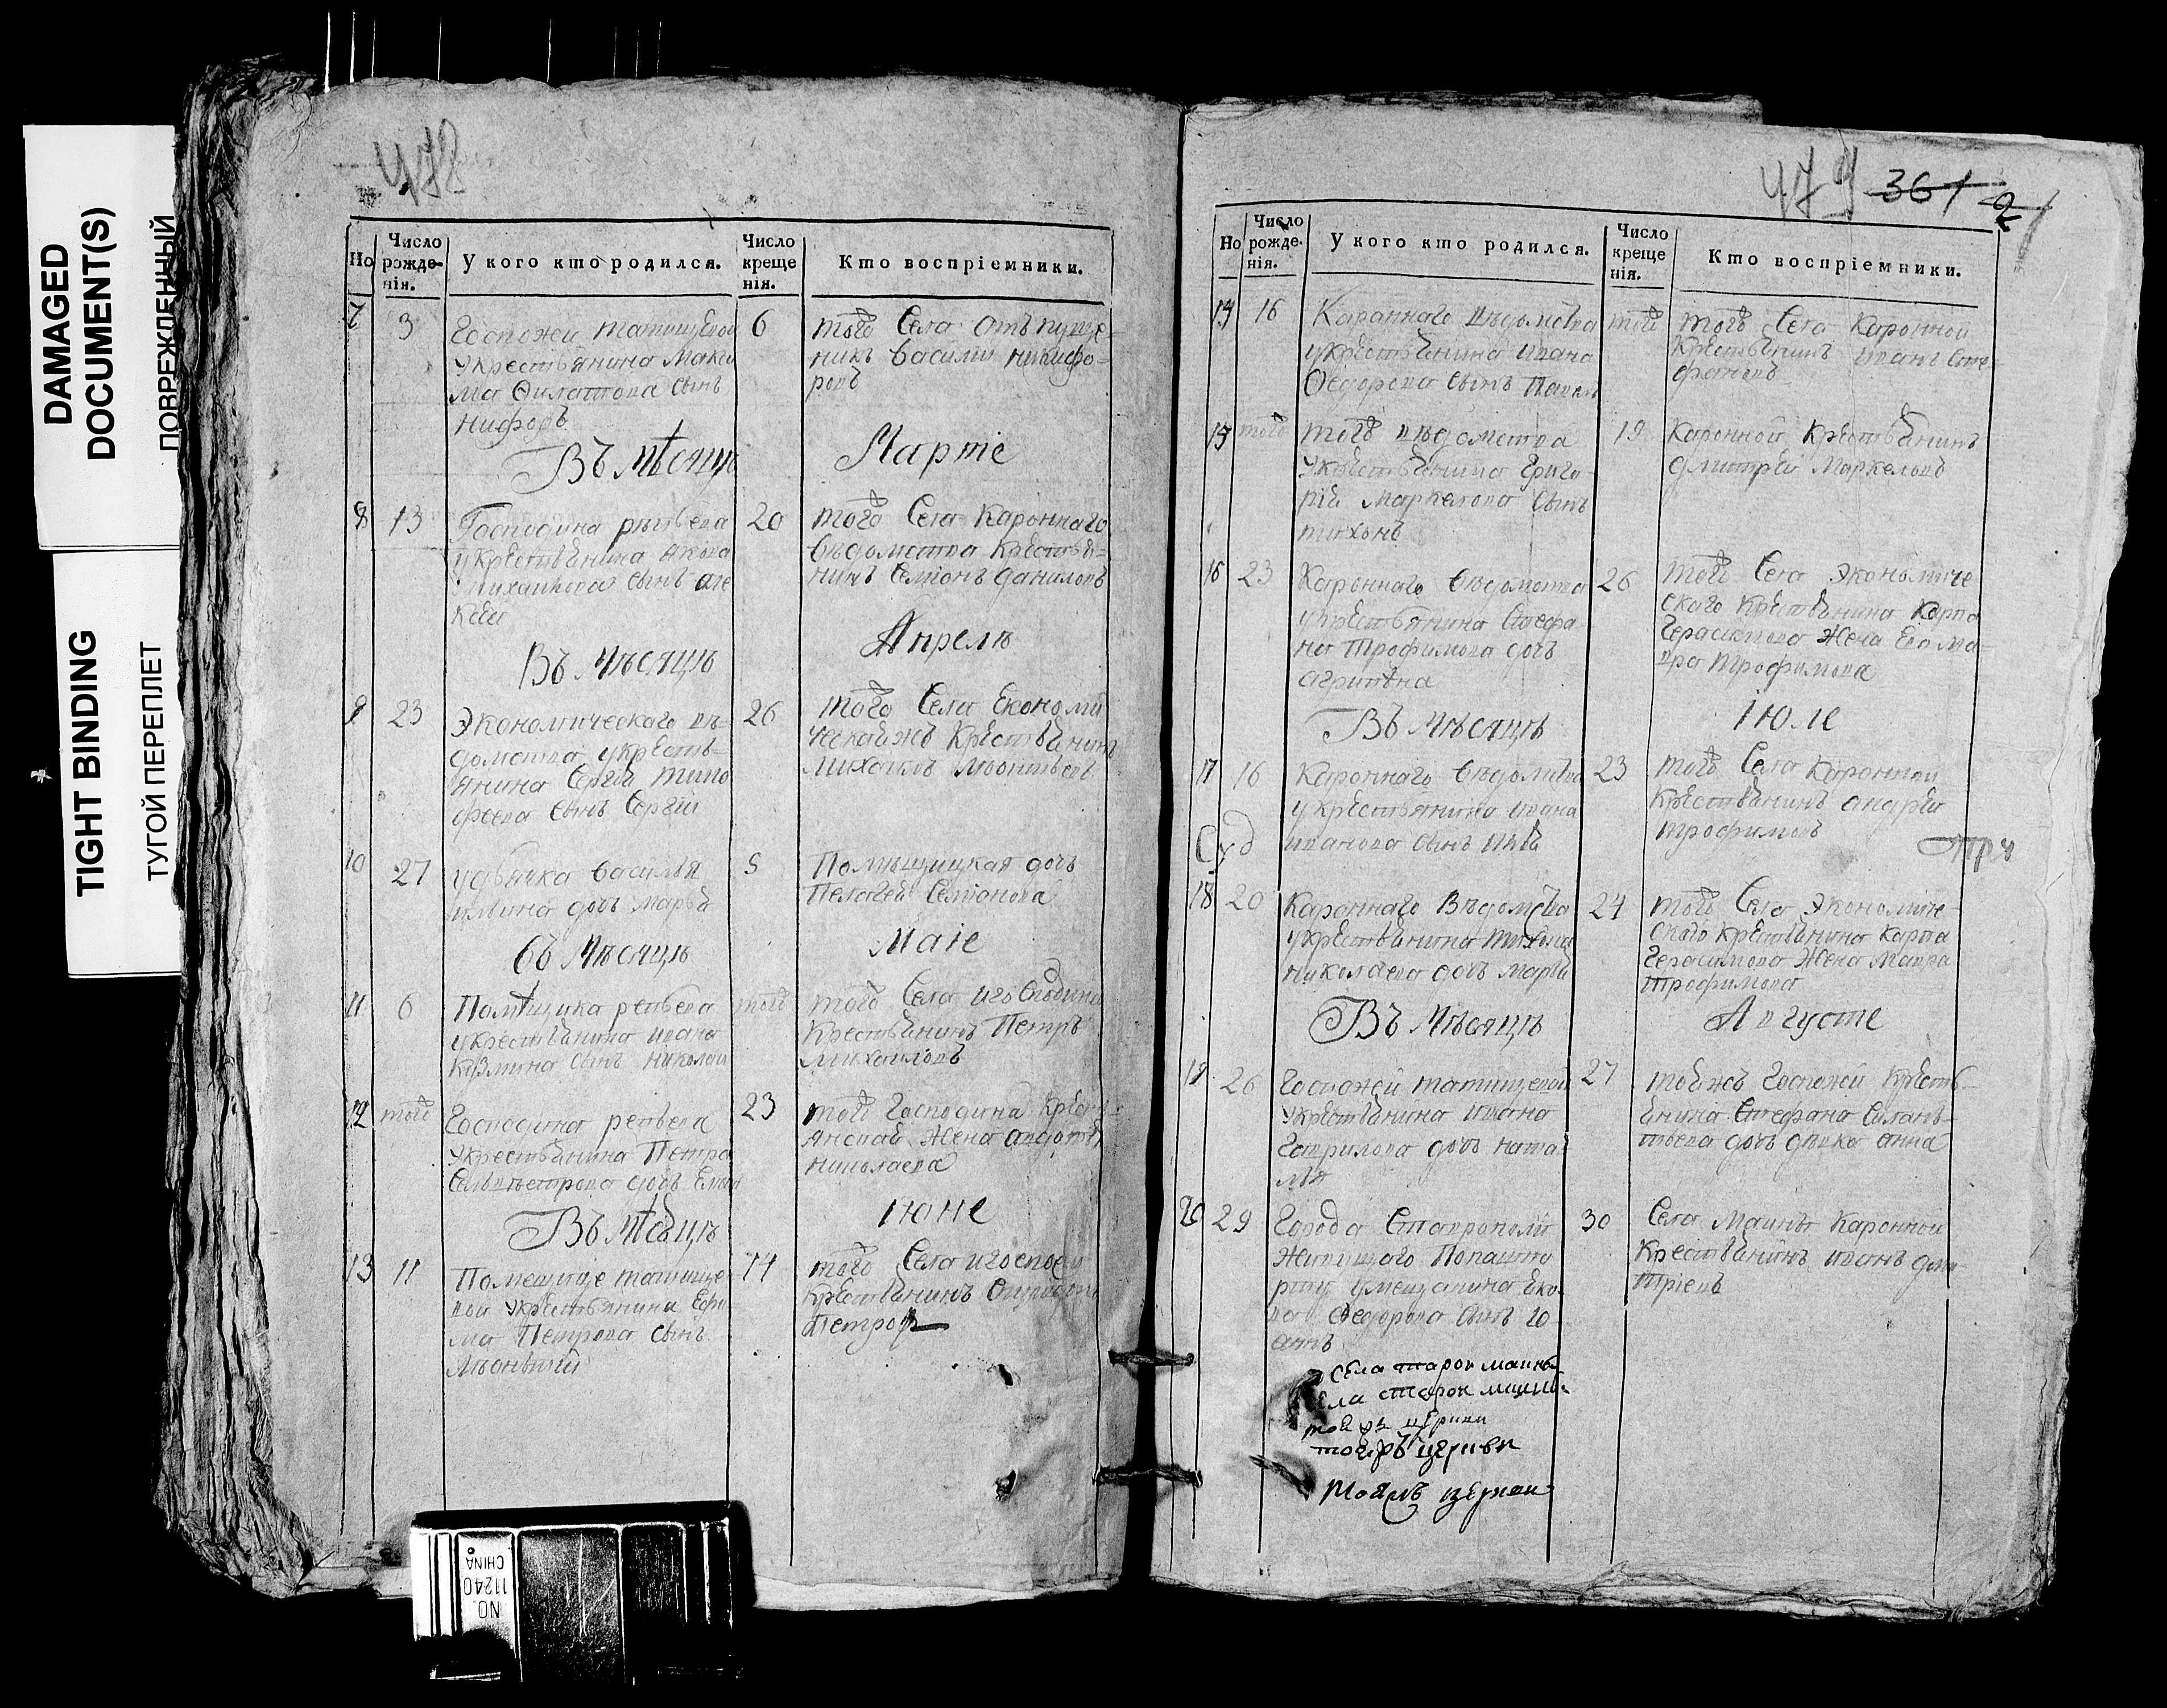 DAMAGED
DOCUMENT(S)
ПОВРЕЖДЕННЫЙ
TIGHT BINDING
ТУГОЙ ПЕРЕПЛЕТ
478
Но
Число рожденія.
У кого кто родился.
Число крещенія.
Кто воспріемники.
7 3
Госпожи татищевой
укрестьянина Макси
ма Филатова сынъ
Нифодъ
6
того Села отъпуще-
никъ василий никифо-
ровъ
Въ мѣсяцѣ Мартіе
8 13
Господина репьева
укрестьянина якова
михайлова сынъ але
ксей
20
того Села Кароннаго
вѣдомства крестья-
нинъ Семіонъ даниловъ
Въ Мѣсяцѣ Апрелѣ
9 23
Экономическаго вѣ-
домства укресть-
янина Сергѣя тимо
феева сынъ Сергій
26
того Села Економи
ческойжъ Крестьянинъ
Михаилъ Леонтьевъ
10 27
удьячка василья
ильина дочь марья
5
Помѣщицкая дочь
Пелагея Семіонова
въ Мѣсяцѣ Маіе
11 6
Помѣщика репьева
укрестьянина ивана
Кузмина сынъ николай
того
того Села игосподина
Крестьянинъ Петръ
михайловъ
12 того
Господина репьева
укрестьянина Петра
Сельвѣстрова дочь
23
того Господина крестъ
янской жена авдотья
николаева
Въ мѣсяцѣ июне
13 11
Помещице татище
вой укрестьянина Ефи
ма Петрова сынъ
Леонтий
14
того Села игоспожи
крестьянинъ
Петровъ
479 361 2
Но
Число рожденія.
У кого кто родился.
Число крещенія.
Кто воспріемники.
14 16
Кароннаго вѣдомства
укрестьянина ивана
Федорова сынъ Павелъ
того
того Села Каронной
Крестьянинъ иванъ Сте
фановъ
15 того
того вѣдомства
укрестьянина Григо
рій маркелова сынъ
тихонъ
19
Каронной крестьянинъ
дмитрей Маркеловъ
16 23
Кароннаго вѣдомства
укрестьянина Стефа
на трофимова дочь
агрипѣна
26
того Села Экономиче
скаго крестьянина Карпа
Герасимова жена Ево ма
вра трофимова
Въ Мѣсяцѣ іюле
17 16
Кароннаго вѣдомства
укрестьянина ивана
иванова сынъ илья
23
того Села Каронной
крестьянинъ андрей
трофимовъ
18 20
Кароннаго Вѣдомства
укрестьянина тихона
николаева дочь марья
24
того Села Экономиче
скаго крестьянина Карпа
Герасимова жена Мавра
трофимова
Въ Мѣсяцѣ Августе
19 26
Госпожей татищевой
укрестьянина ивана
Гаврилова дочь ната
лья
27
тоейжъ Госпожей Кресть-
янина Стефана Силанъ-
тьева дочь дѣвка анна
20 29
Города Ставрополя
Живущаго Попашпо
рту умещанина Яко
ва Феодорова сынъ Іо
аннъ
30
Села Маины Каронной
Крестьянинъ иванъ дми
тріевъ
села старой маины
ела старой маины
NO. 11240
CHINA